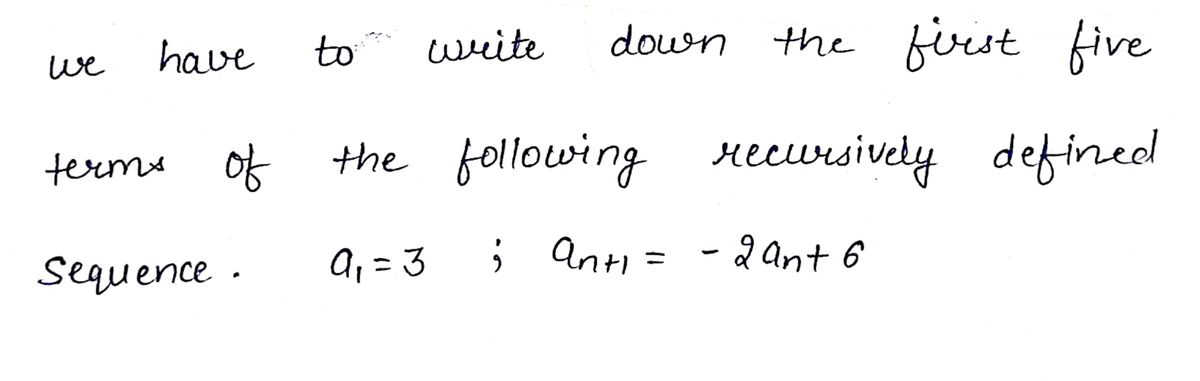 we have to write down the first five
terms of the following recursively defined
Sequence. a₁ = 3 ; aₙ₊₁ = - 2aₙ + 6